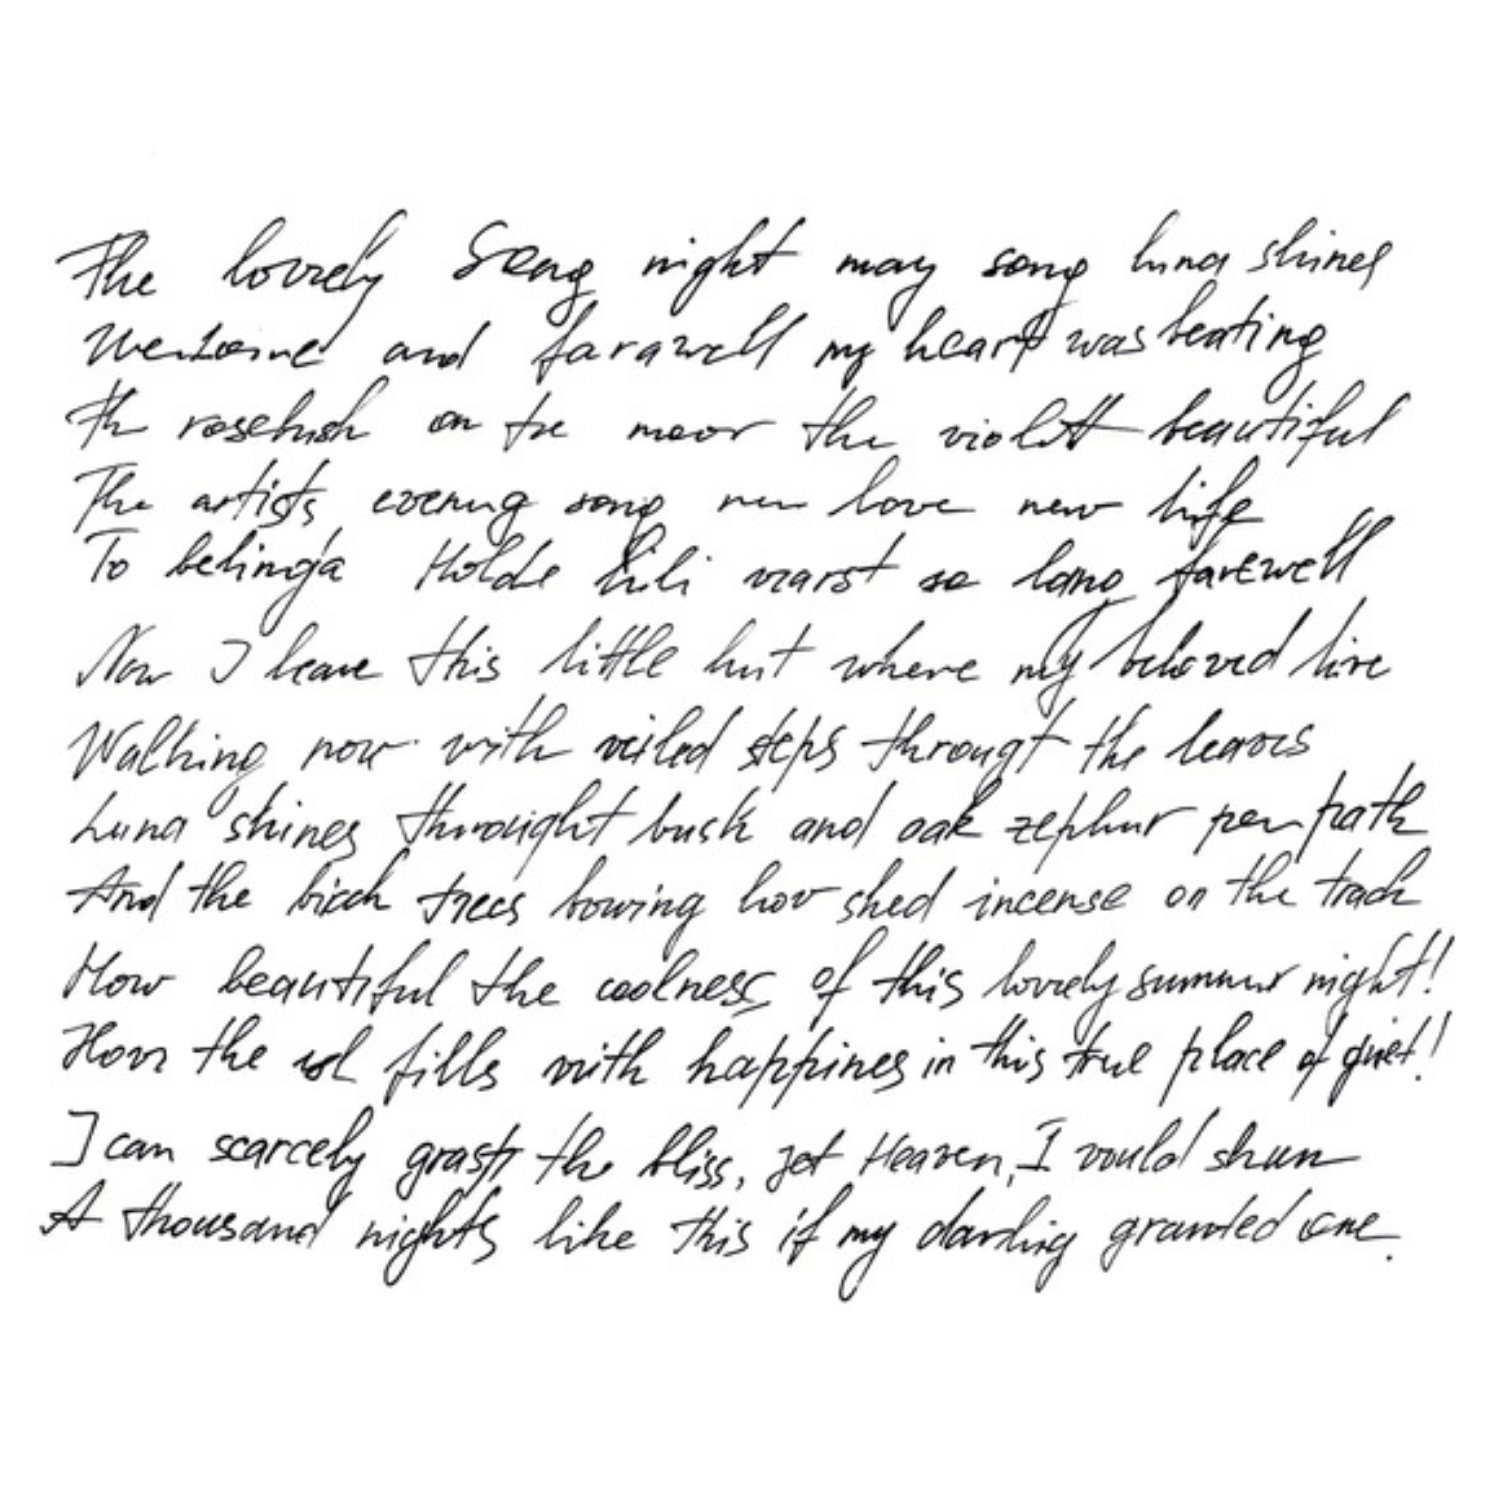 The lovely Song night may song luna shines
Welcome and farawell my heart was beating
Th rosebush on tre moor the violett beautiful
The artists evening song new love new life
To belinda Holde Lili warst so lang farewell
Now I leave this little hut where my beloved live
Walking now with veiled steps througt the leaves
Luna shines throught bush and oak zephur per path
And the birch trees bowing low shed incense on the track
How beautiful the coolness of this lovely summer night!
How the fills with happines in this true place of quiet!
I can scarcely grasp the bliss, jet Heaven, I would shun
A thousand nights like this if my darling granted one.